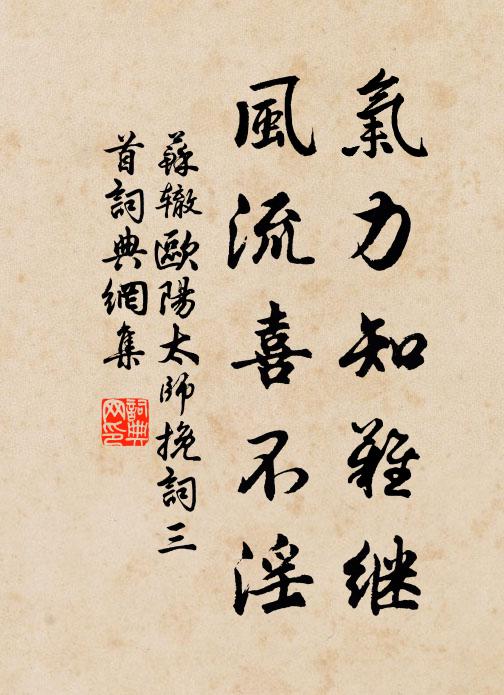 氣力知難继
風流喜不淫
蘇辙歐陽太師挽詞三
首詞典網集
詞典
网印